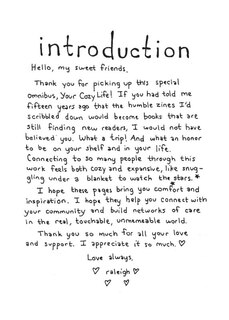 introduction
Hello, my sweet friends,
Thank you for picking up this special
omnibus, Your Cozy Life! If you had told me
fifteen years ago that the humble zines I'd
scribbled down would become books that are
still finding new readers, I would not have
believed you. What a trip! And what an honor
to be on your shelf and in your life.
Connecting to so many people through this
work feels both cozy and expansive, like snug-
gling under a blanket to watch the stars.*
I hope these pages bring you comfort and
inspiration. I hope they help you connect with
your community and build networks of care
in the real, touchable, unmemeable world.
Thank you so much for all your love
and support. I appreciate it so much. ♡
Love always,
♡ raleigh ♡
♡ ♡